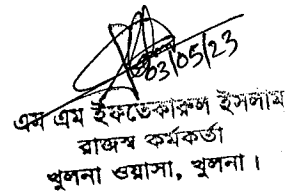 03/05/23
এস এম ইফতেকারুল ইসলাম
রাজস্ব কর্মকর্তা
খুলনা ওয়াসা, খুলনা।